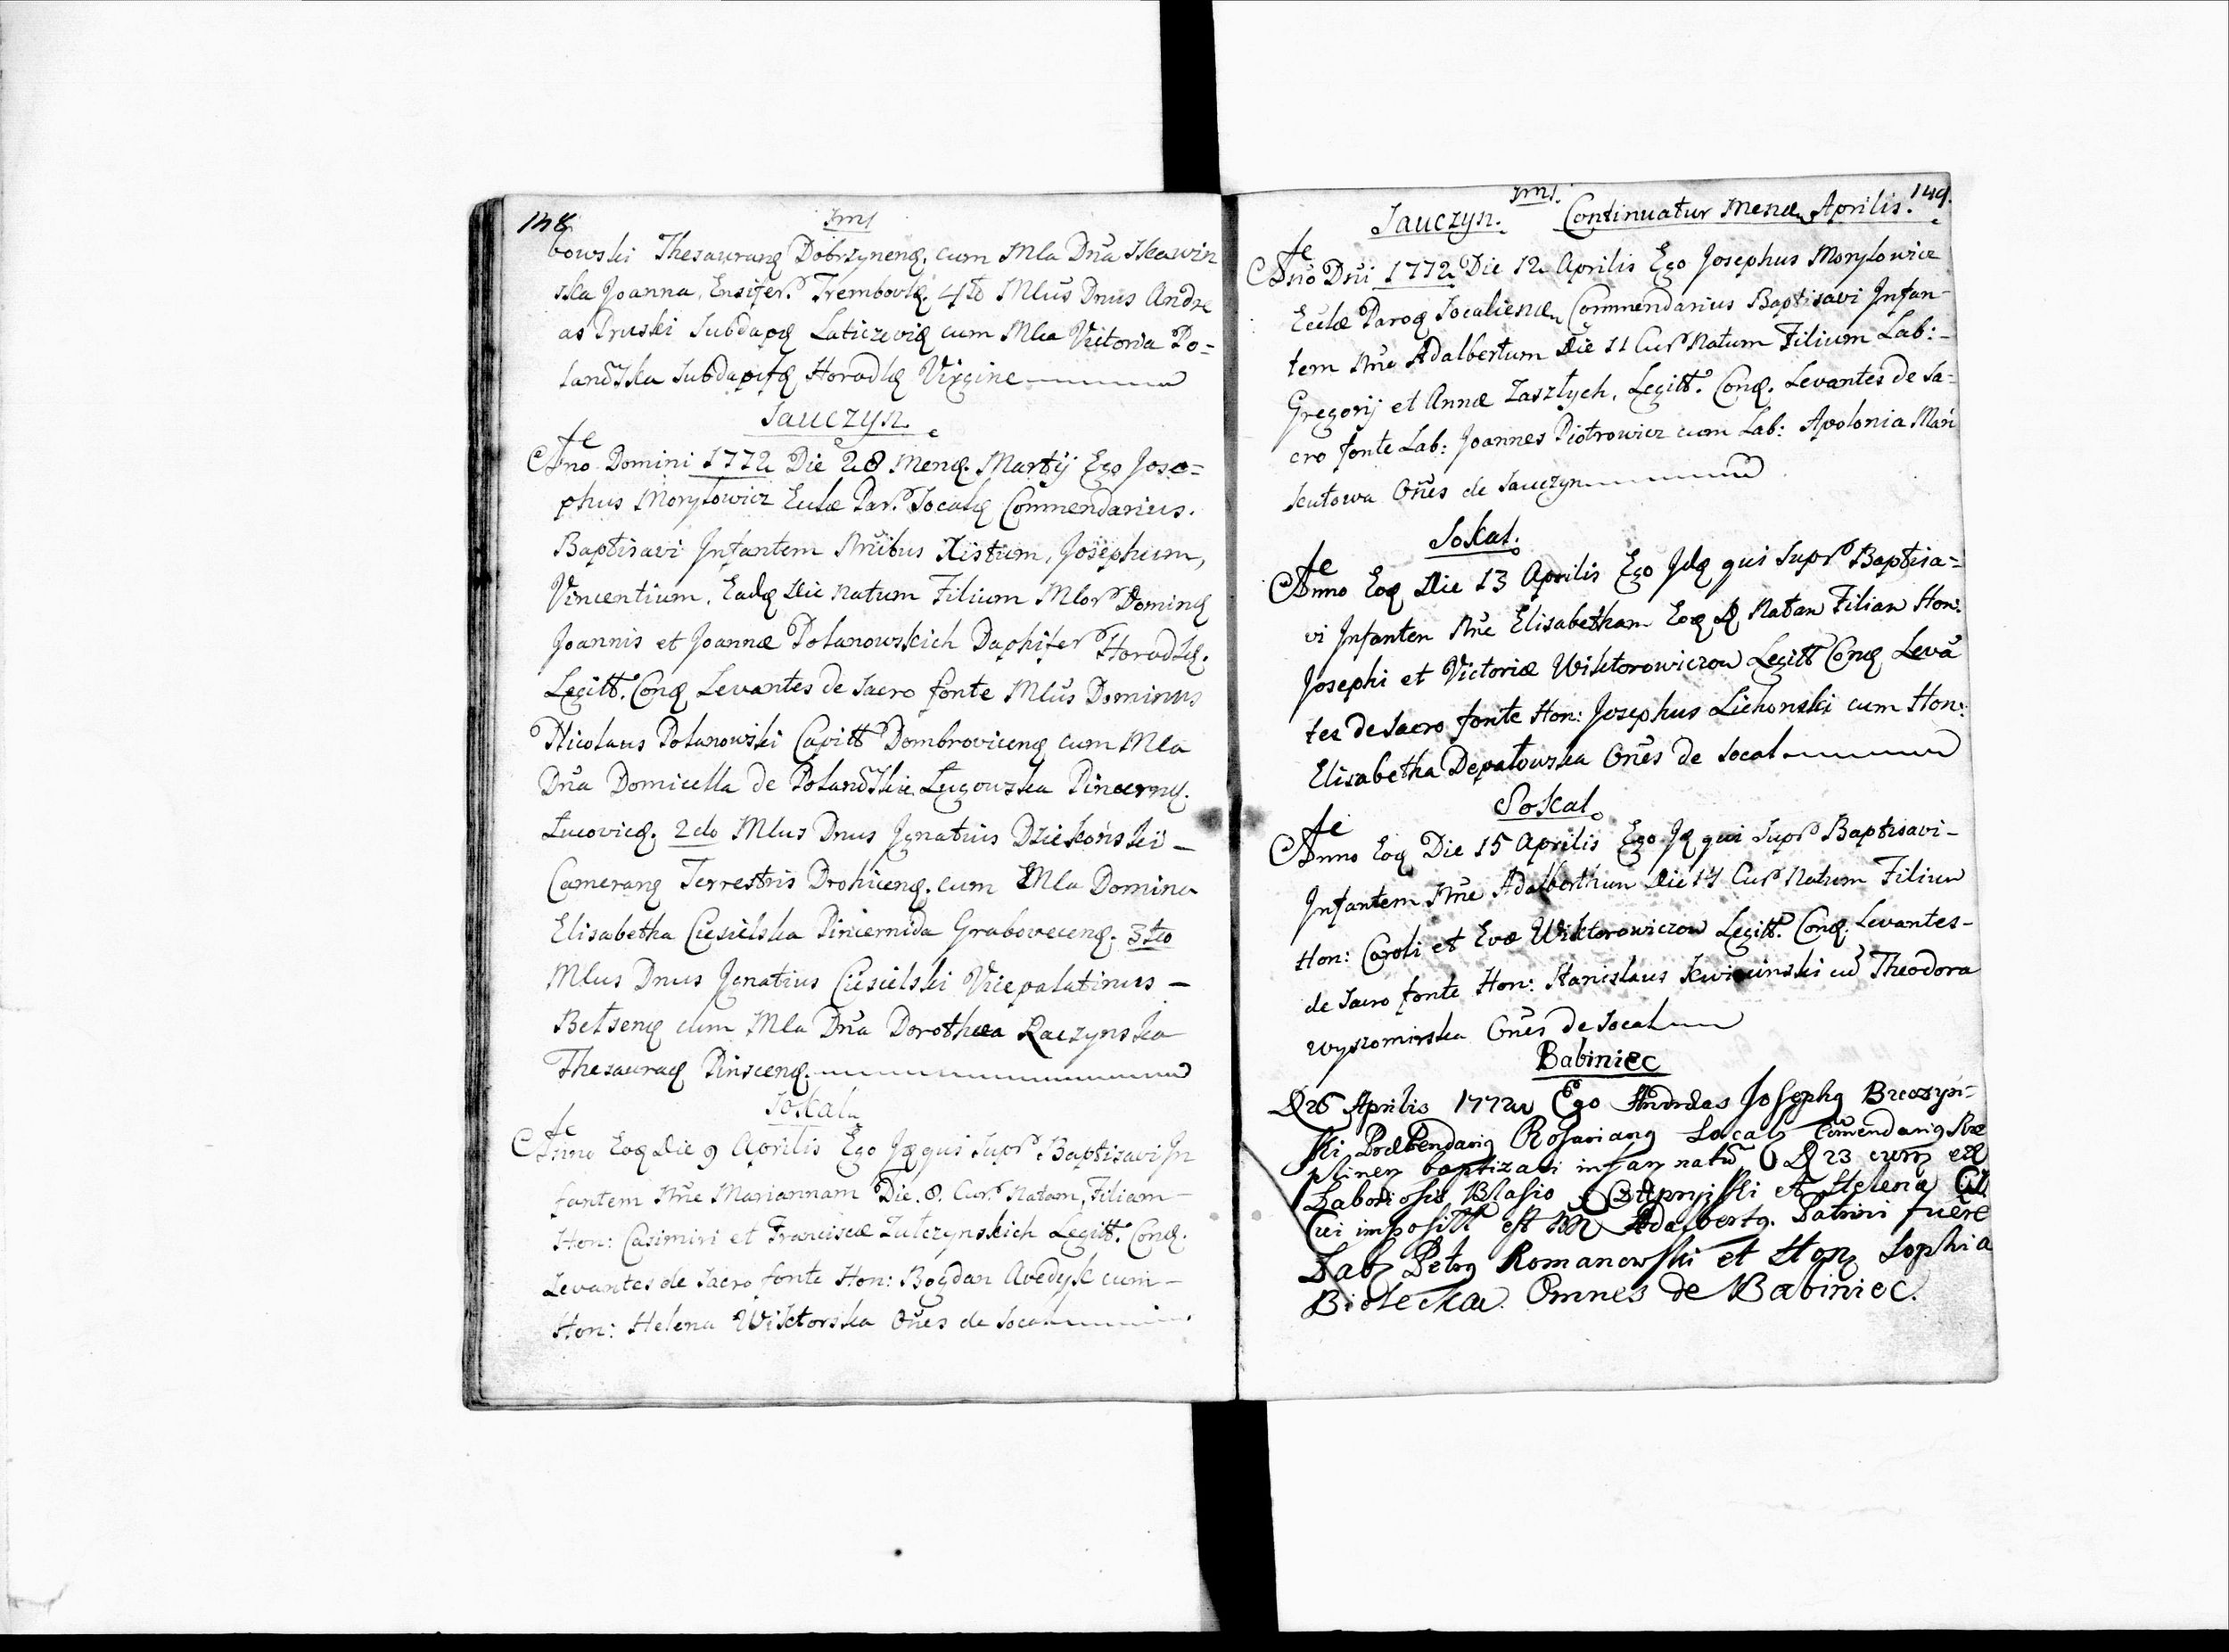 148
Jms
bowski Thesaurarꝫ Dobrzynenꝫ. cum Mla Dña Skawin
ska Joanna, Ensifer. Trembovlꝫ. 4to Mlus Dnus Andre
as Pruski Subdapꝫ Laticzeviꝫ cum Mla Victoria Po=
lanoska Subdapifꝫ Horodlꝫ Virgine
Sauczyn.
te
Ano Domini 1772 Die 28 Menꝫ. Martij Ego Jose=
phus Morylowicz Eclæ Par. Socalꝫ Commendarius.
Baptisavi Infantem Nñibus Xistum, Josephum,
Vincentium, Eadꝫ Die natum Filium Mlor Dominꝫ
Joannis et Joannæ Polanowskich Daphifer Horodlꝫ.
Legitt. Conꝫ Levantes de Sacro fonte Mlus Dominus
Nicolaus Polanowski Capitt Dombrovicenꝫ cum Mla
Dña Domicella de Polanoskie Lugowska Pincernꝫ.
Lucoviꝫ. 2do Mlus Dnus Ignatius Dziekoński –
Cameranꝫ Terrestris Drohicenꝫ. cum Mla Domina
Elisabetha Ciesielska Pincernida Grabovecenꝫ. 3tio
Mlus Dnus Ignatius Ciesielski Vicepalatinus –
Betsenꝫ cum Mla Dña Dorothea Raczynska
Thesauraꝫ Pinscenꝫ.
Sokal
te
Anno Eoꝫ Die 9 Aprilis Ego Jꝫ qui Supr Baptisavi In
fantem Nñe Mariannam Die. 8. Cur. Natam, Filiam –
Hon: Casimiri et Franciscæ Zulczynskich Legitt. Conꝫ.
Levantes de Sacro fonte Hon: Bogdan Avedyk cum –
Hon: Helena Wiktorska Oñes de Socal
Jms.
149.
Sauczyn. Continuatur Mensæ Aprilis.
te
Año Dñi 1772 Die 12 Aprilis Ego Josephus Morylowicz
Eclæ Paroꝫ Socaliensæ Commendarius Baptisavi Infan–
tem Nñe Adalbertum Die 11 Cur Natum Filium Lab: –
Gregorij et Annæ Zaszłych, Legitt. Conꝫ. Levantes de Sa=
cro fonte Lab: Joannes Piotrowicz cum Lab: Apolonia Mań
kutowa Oñes de Sauczyn
Sokal.
te
Anno Eoꝫ Die 13 Aprilis Ego Jdꝫ qui Supr Baptisa=
vi Infantem Nñe Elisabetham Eoꝫ D Natam Filiam Hon:
Josephi et Victoriæ Wiktorowiczow Legitt Conꝫ Levã
tes de Sacro fonte Hon: Josephus Lichonski cum Hon:
Elisabetha Depałowska Oñes de Socal
Sokal.
te
Anno Eoꝫ Die 15 Aprilis Ego Jꝫ qui Supr Baptisavi –
Infantem Nñe Adalberthum Die 14 Cur Natum Filium
Hon: Caroli et Evæ Wiktorowiczow Legitt. Conꝫ. Levantes –
de Sacro fonte Hon: Stanislaus cũ Theodora
wyszomirska Oñes de Socal
Babiniec
D 26 Aprilis 1772 Ego Andreas Josephꝫ Brzozyń=
ski Præbendariꝫ Rosarianꝫ Socal Comendariꝫ
baptizavi infan natũ D 23 curr
Laborioso Blasio et Helena
Cui impositt est Adalbertꝫ. Patrini fuere
Lab Petrꝫ Romanowski et Hon Sophia
Bielecka. Omnes de Babiniec.